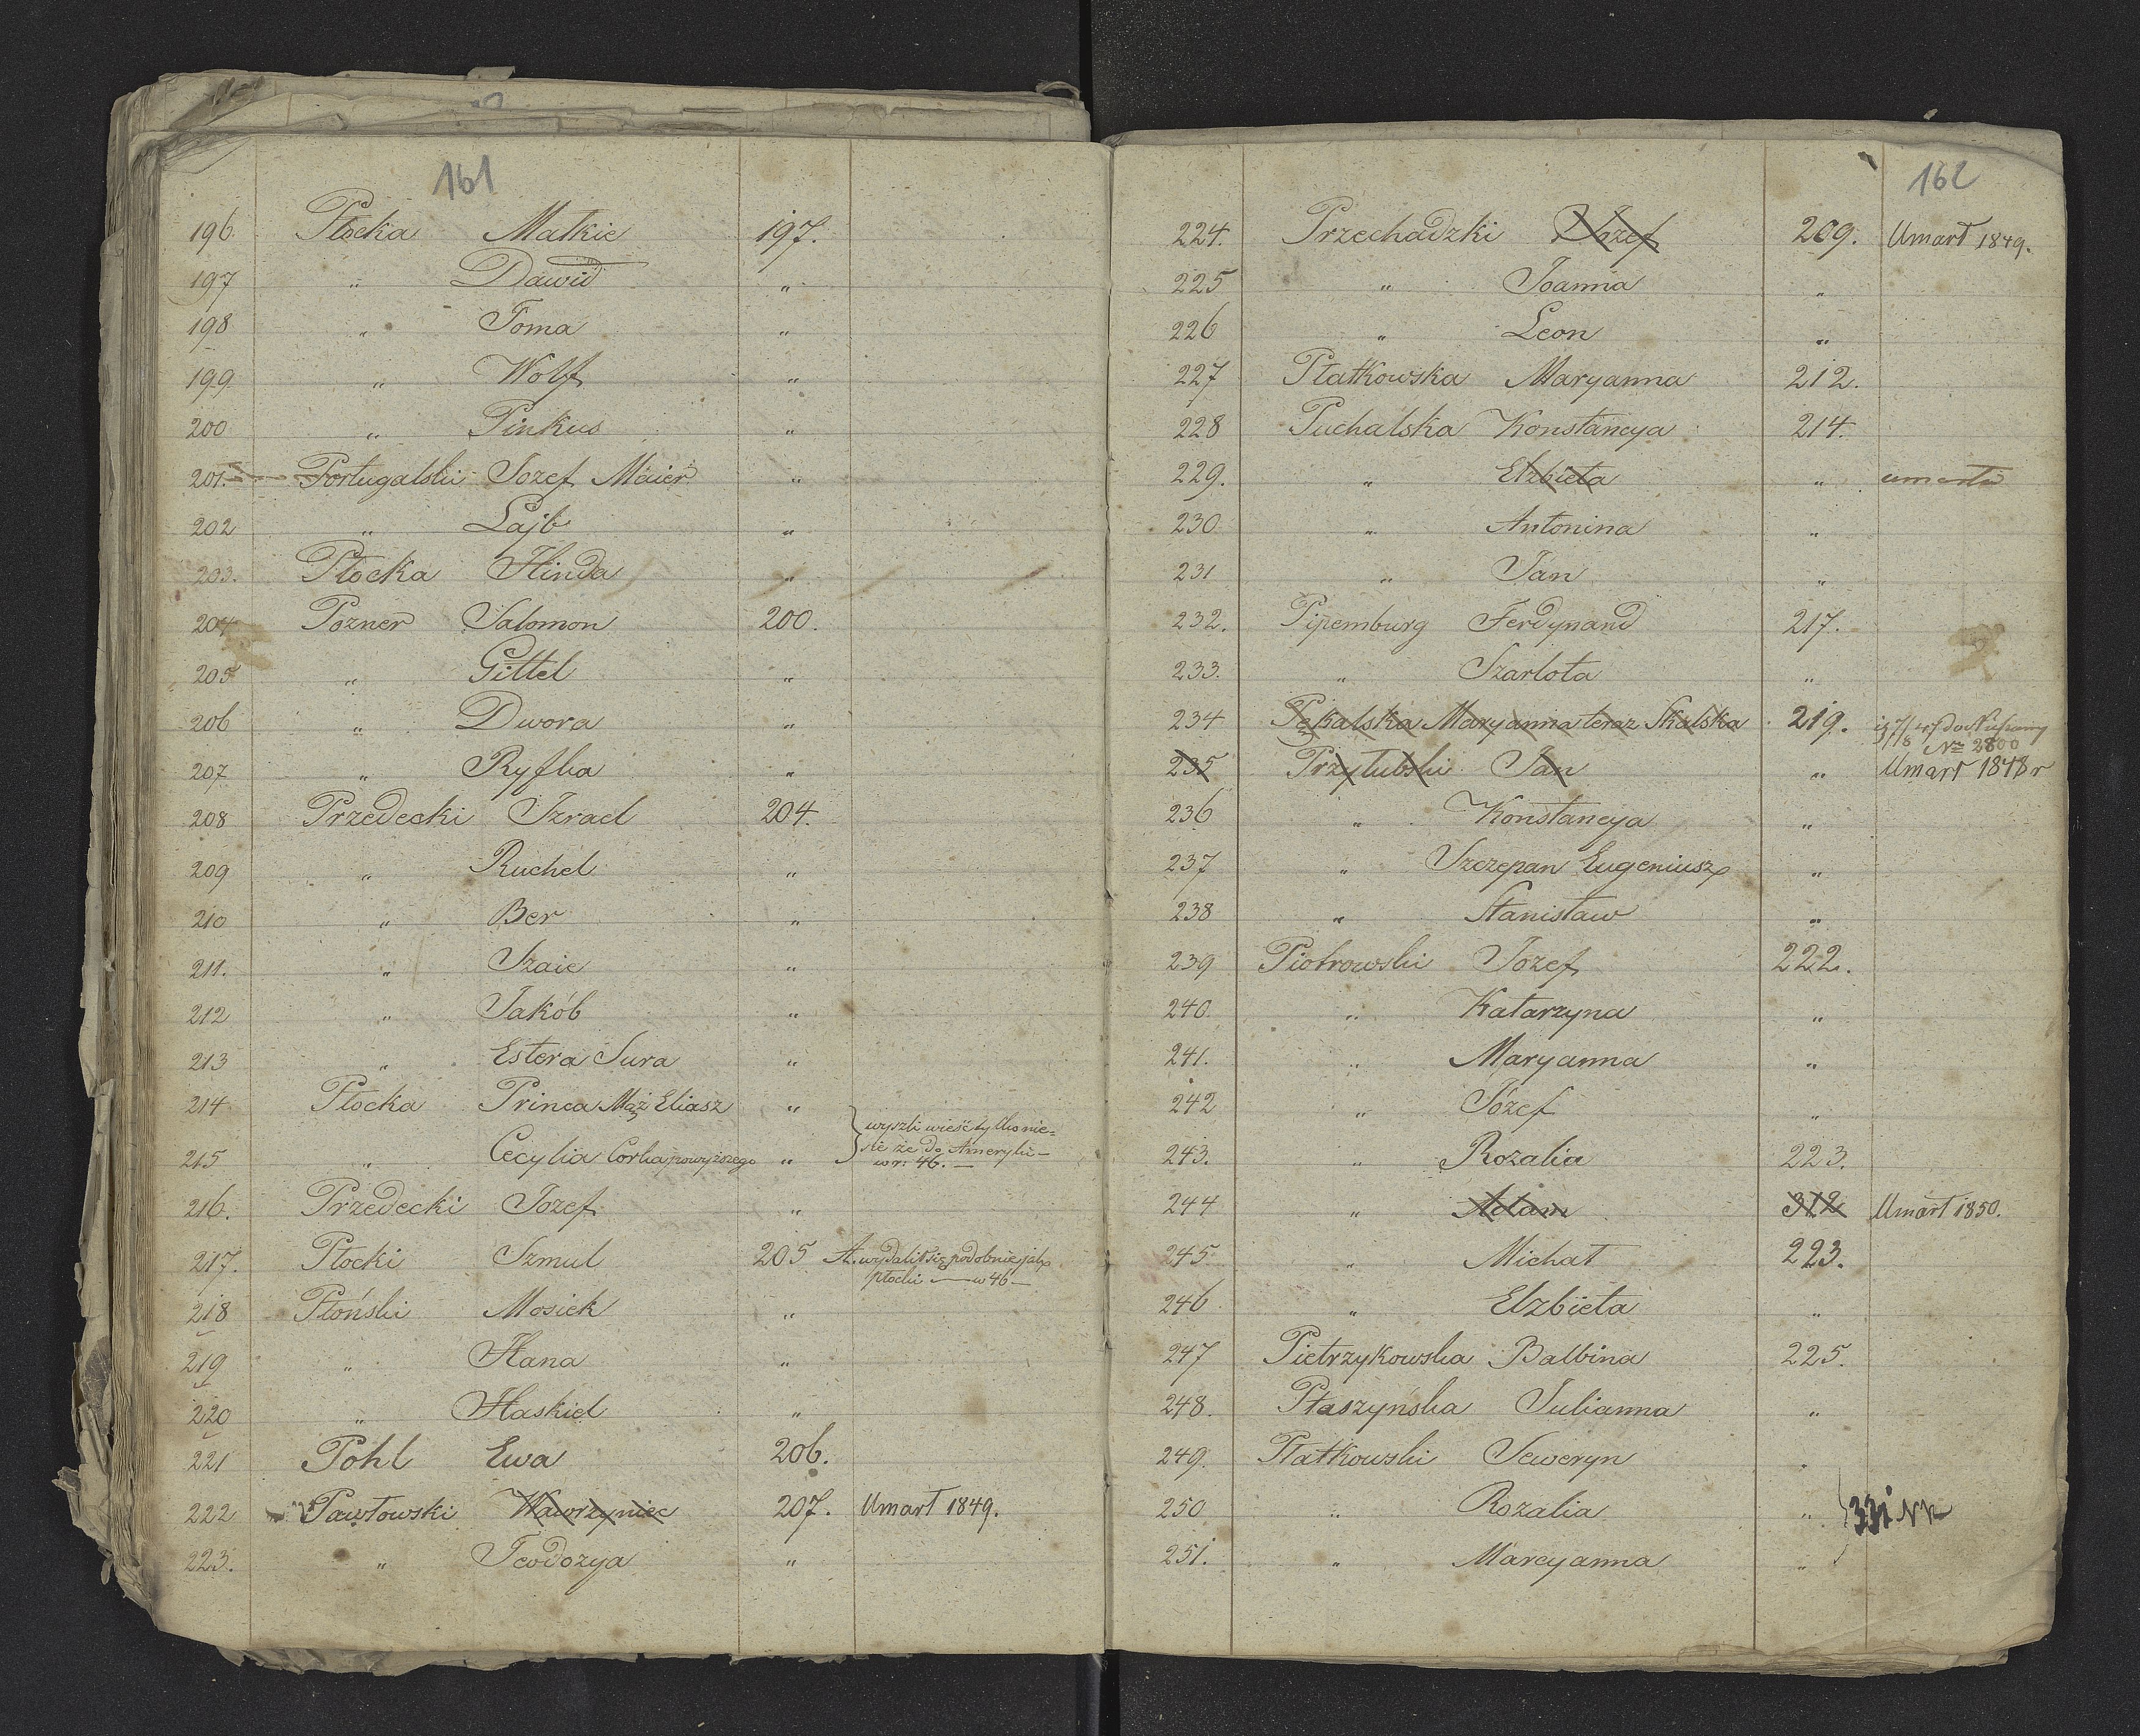 161
196. Płocka Małkie 197.
197 " Dawid "
198 " Toma "
199 " Wolf "
200 " Pinkus "
201. Portugalski Jozef Meier "
202 " Lajb "
203. Płocka Hinda "
204 Pozner Salomon 200.
205 " Gittel "
206 " Dwora "
207 " Ryfka "
208 Przedecki Izrael 204.
209 " Ruchel "
210 " Ber "
211. " Szaie "
212 " Jakób "
213 " Estera Sura "
214 Płocka Princa Mąż Eliasz "
215 " Cecylia Corka powyższego " } wyszli wieść tylko nie=
sie że do Ameryki –
w r: 46. –
216. Przedecki Jozef "
217. Płocki Szmul 205 A. wydalił się podobnie jak
płocki — w 46 –
218 Płoński Mosiek "
219 " Hana "
220 " Haskiel "
221 Pohl Ewa 206.
222 Pawłowski Wawrzyniec 207. Umarł 1849.
223. " Teodozya "
162
224. Przechadzki Jozef 209. Umarł 1849.
225 " Joanna "
226 " Leon "
227 Płatkowska Maryanna 212.
228 Puchalska Konstancya 214.
229. " Elzbieta " umarła
230. " Antonina "
231 " Jan "
232. Pipemburg Ferdynand 217.
233. " Szarlota "
234 Pękalska Maryanna teraz Skalska 219.
№ 2800
235 Przyłubski Jan " Umarł 1848 r
236 " Konstancya "
237 " Szczepan Eugeniusz "
238 " Stanisław "
239 Piotrowski Jozef 222.
240. " Katarzyna "
241. " Maryanna "
242 " Józef "
243. " Rozalia 223.
244 " Adam 312 Umarł 1850.
245 " Michał 223.
246 " Elzbieta "
247 Pietrzykowska Balbina 225.
248. Ptaszyńska Julianna "
249. Płatkowski Seweryn "
250 " Rozalia " } 331 Nr
251. " Marcyanna "